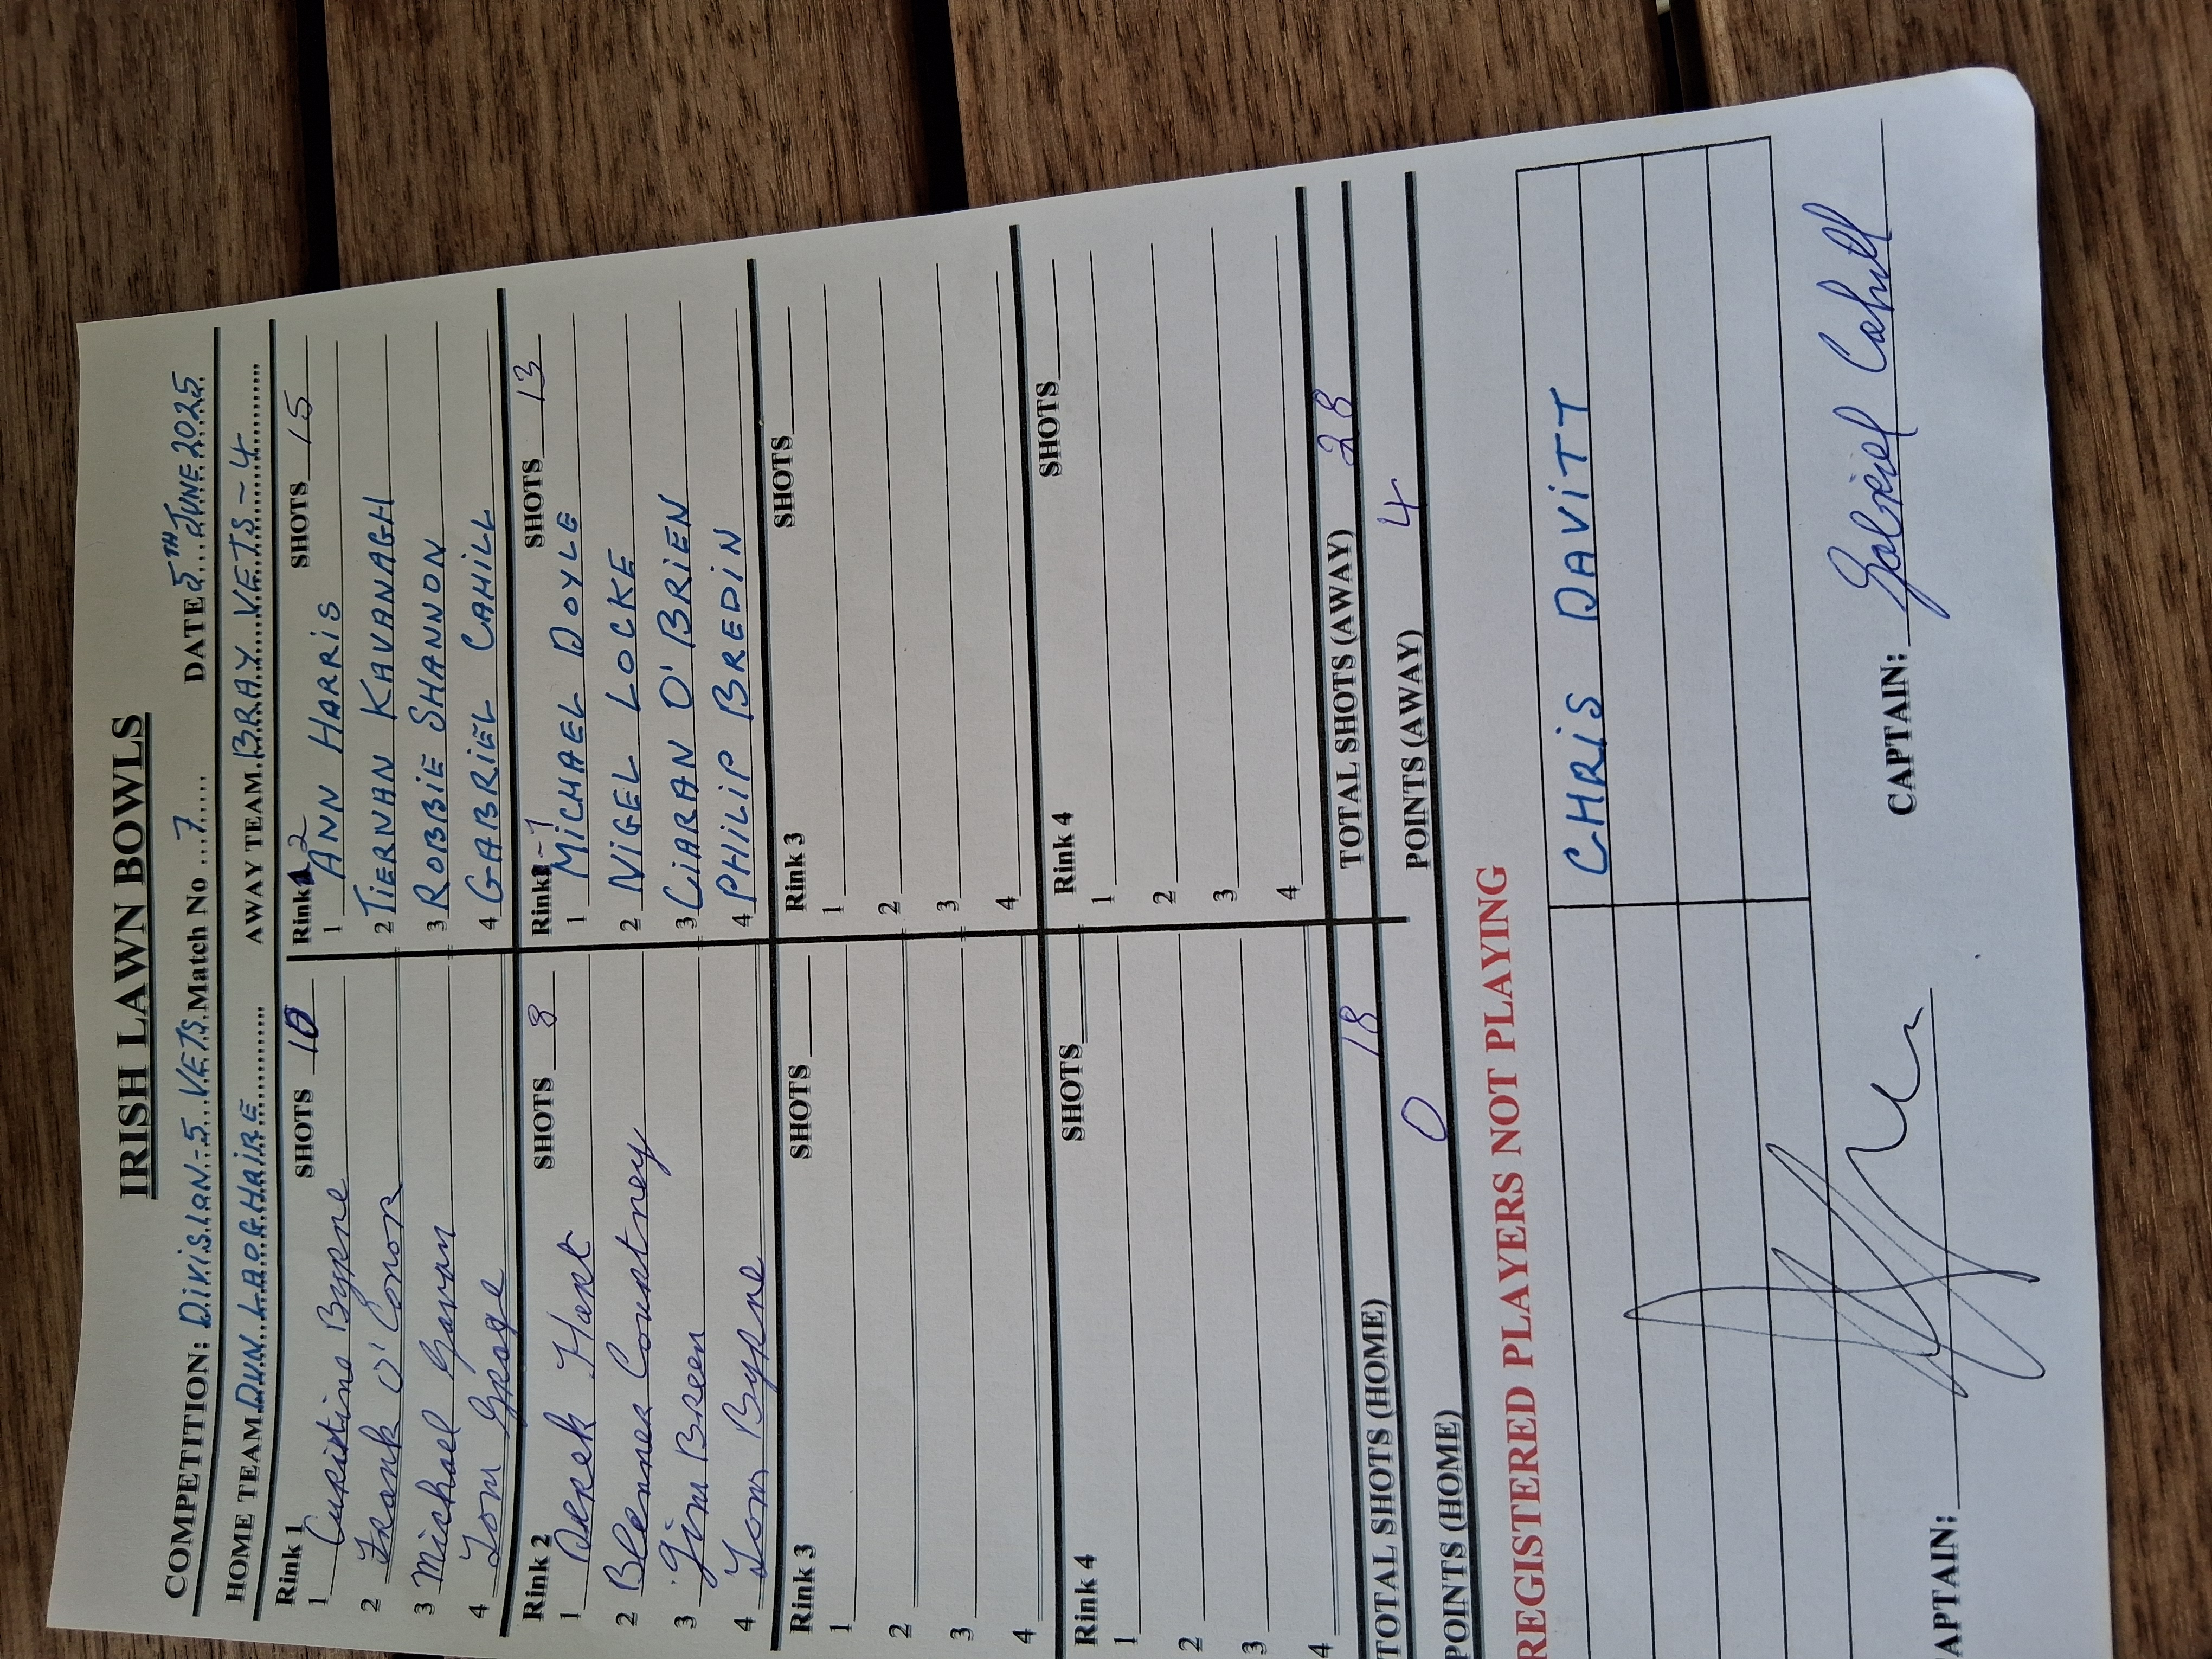 IRISH LAWN BOWLS
COMPETITION: DIVISION-5 VETS Match No 7 DATE 5TH JUNE 2025
HOME TEAM DUN LAOGHAIRE AWAY TEAM BRAY VETS-4
Rink 1 SHOTS 10 Rink 2 SHOTS 15
1 Christine Byrne 1 ANN HARRIS
2 Frank O'Conor 2 TIERNAN KAVANAGH
3 Michael Gavan 3 ROBBIE SHANNON
4 Tom 4 GABRIEL CAHILL
Rink 2 SHOTS 8 Rink-1 SHOTS 13
1 Derek Hart 1 MICHAEL DOYLE
2 Courtney 2 NIGEL LOCKE
3 Jim Breen 3 CIARAN O'BRIEN
4 Tom Byrne 4 PHILIP BREDIN
Rink 3 SHOTS Rink 3 SHOTS
1 1
2 2
3 3
4 4
Rink 4 SHOTS Rink 4 SHOTS
1 1
2 2
3 3
4 4
TOTAL SHOTS (HOME) 18 TOTAL SHOTS (AWAY) 28
POINTS (HOME) 0 POINTS (AWAY) 4
REGISTERED PLAYERS NOT PLAYING
CHRIS DAVITT
APTAIN: CAPTAIN: Gabriel Cahill